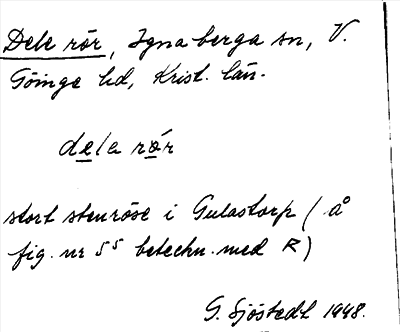 Dele rör, Ignaberga sn, V.
Göinge hd, Krist. län.
dela rór
stort stenröse i Gulastorp (å
fig. nr 55 betechn. med R)
G. Sjöstedt 1948.